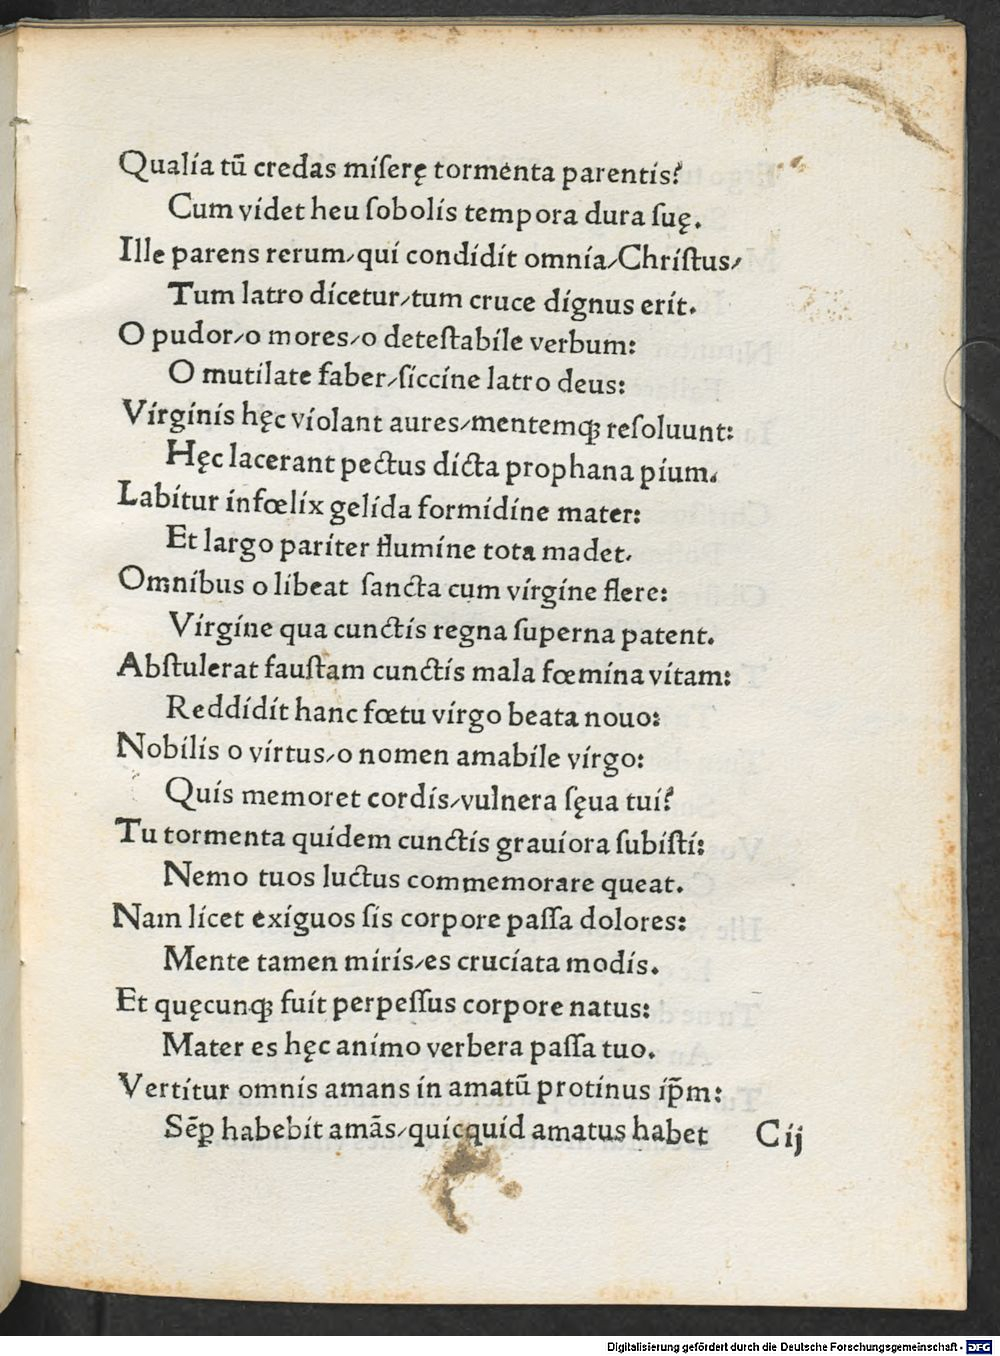 Qualia tū credas miſerę tormenta parentis?
Cum videt heu ſobolis tempora dura ſuę.
Ille parens rerum/qui condidit omnia/Chriſtus/
Tum latro dicetur/tum cruce dignus erit.
O pudor/o mores/o deteſtabile verbum:
O mutilate faber/ſiccine latro deus:
Virginis hęc violant aures/mentemqꝫ reſoluunt:
Hęc lacerant pectus dicta prophana pium.
Labitur infœlix gelida formidine mater:
Et largo pariter flumine tota madet.
Omnibus o libeat ſancta cum virgine flere:
Virgine qua cunctis regna ſuperna patent.
Abſtulerat fauſtam cunctis mala fœmina vitam:
Reddidit hanc fœtu virgo beata nouo:
Nobilis o virtus/o nomen amabile virgo:
Quis memoret cordis/vulnera ſęua tui?
Tu tormenta quidem cunctis grauiora ſubiſti:
Nemo tuos luctus commemorare queat.
Nam licet exiguos ſis corpore paſſa dolores:
Mente tamen miris/es cruciata modis.
Et quęcunqꝫ fuit perpeſſus corpore natus:
Mater es hęc animo verbera paſſa tuo.
Vertitur omnis amans in amatū protinus ip̄m:
Sēꝑ habebit amās/quicquid amatus habet Cij
Digitalisierung gefördert durch die Deutsche Forschungsgemeinschaft - DFG